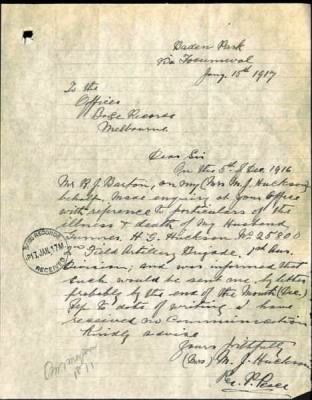 Baden Park
Via Tocumwal
Jany 15th 1917
To the
Officer
Base Records
Melbourne
Dear Sir
On the 5th & Dec. 1916
Mr R. J. Barton, on my (Mrs M. J. Huckson)
behalf, made enquiry at your Office
with reference to particulars of the
illness & death of My Husband
Gunner H. G. Huckson No 25800
Field Artillery Brigade, 1st Aus.
Division; and was informed that
such would be sent me, by letter
probably by the end of the Month (Dec.)
Up to date of writing I have
received no Communication
Kindly advise
Yours faithfully
(Mrs) M. J. Huckson
Per. P.
BASE RECORDS
17 JAN. 17 M
RECEIVED